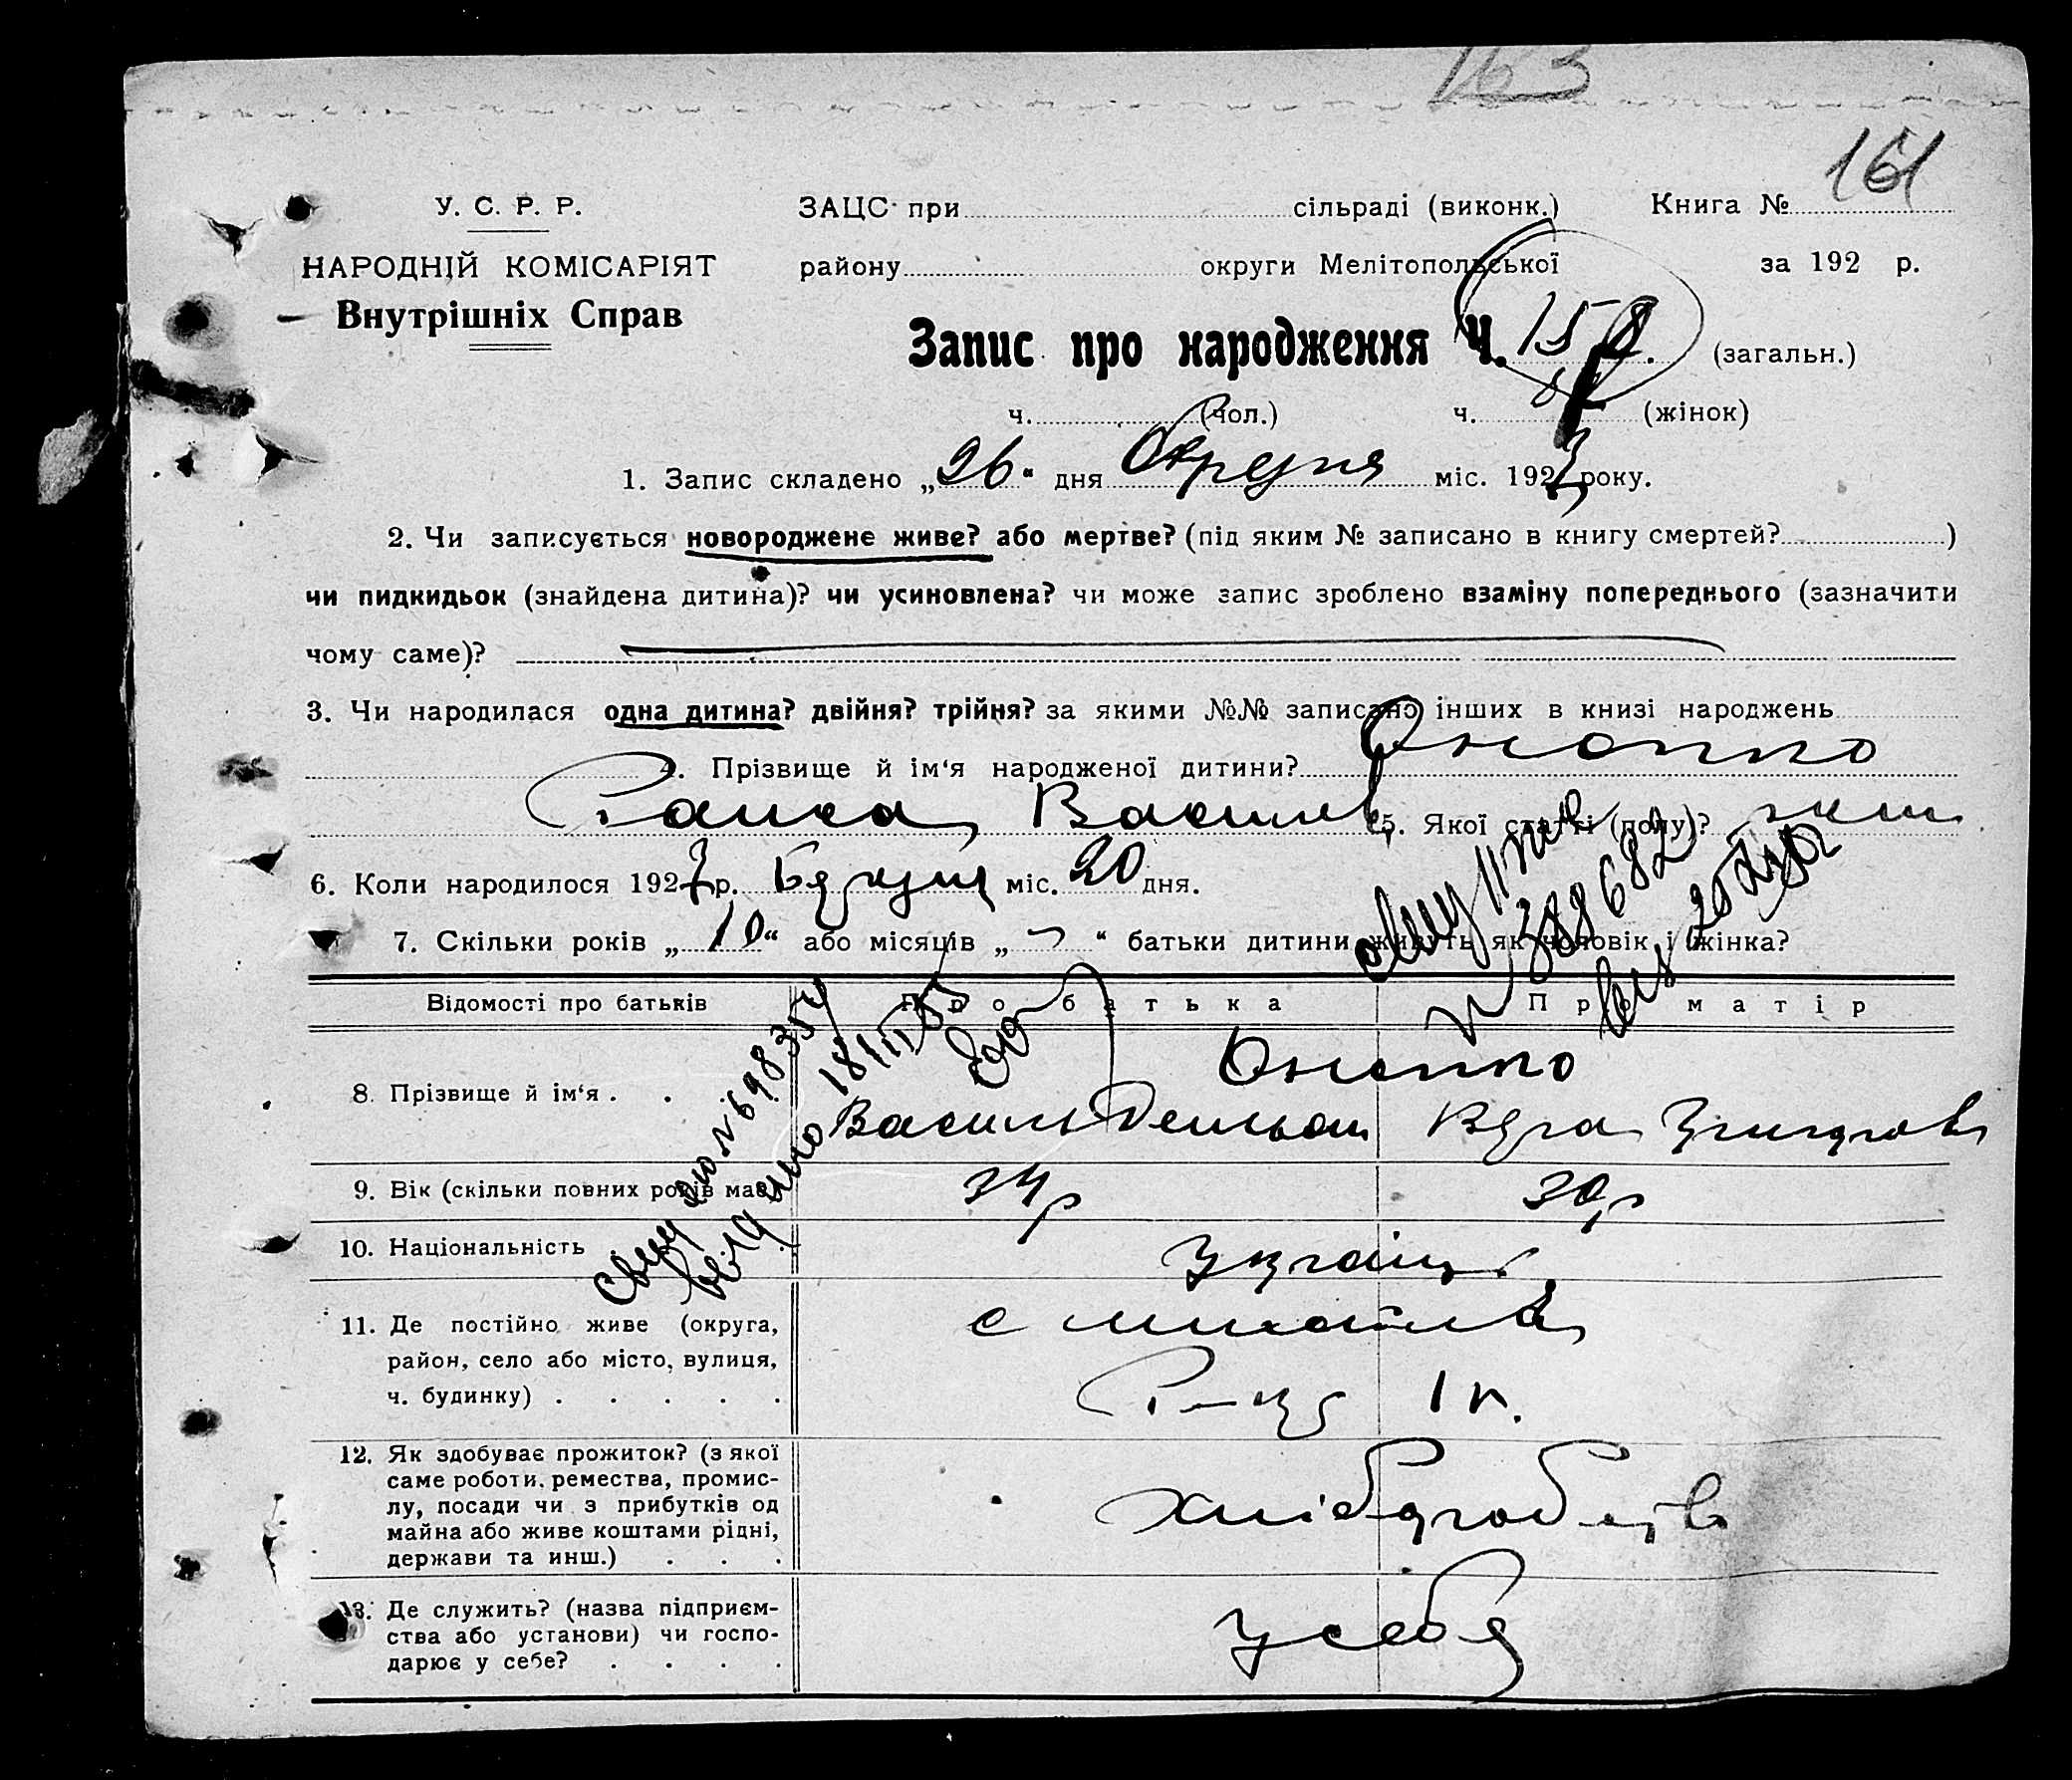 163
161
У. С. Р. Р.
ЗАЦС при сільраді (виконк.) Книга №
НАРОДНІЙ КОМІСАРІЯТ
району округи Мелітопольської за 192 р.
Внутрішніх Справ
Запис про народження Ч. 158. (загальн.)
ч. (чол.) ч. (жінок)
1. Запис складено „26“ дня міс. 1927 року.
2. Чи записується новороджене живе? або мертве? (під яким № записано в книгу смертей? )
чи пидкидьок (знайдена дитина)? чи усиновлена? чи може запис зроблено взаміну попереднього (зазначити
чому саме)?
3. Чи народилася одна дитина? двійня? трійня? за якими №№ записано інших в книзі народжень
4. Прізвище й ім‘я народженої дитини? Онопко
Раиса Васил 5. Якої статті (полу)? жін
6. Коли народилося 1927 р. міс. 20 дня.
7. Скільки років „10“ або місяців „ “ батьки дитини живуть як чоловік і жінка?
388682
Відомості про батьків Про батька Про матір
№698354
18/III 55
Онопко
8. Прізвище й ім‘я . . Василь
9. Вік (скільки повних років має) 34 р 30 р
10. Національність Україн.
11. Де постійно живе (округа, с Михайлів
район, село або місто, вулиця,
ч. будинку) . . . . . 1 к.
12. Як здобуває прожиток? (з якої
саме роботи, ремества, промис-
лу, посади чи з прибутків од хліборобств
майна або живе коштами рідні,
держави та инш.) . . .
13. Де служить? (назва підприєм-
ства або установи) чи госпо- у себе
дарює у себе? . . . .